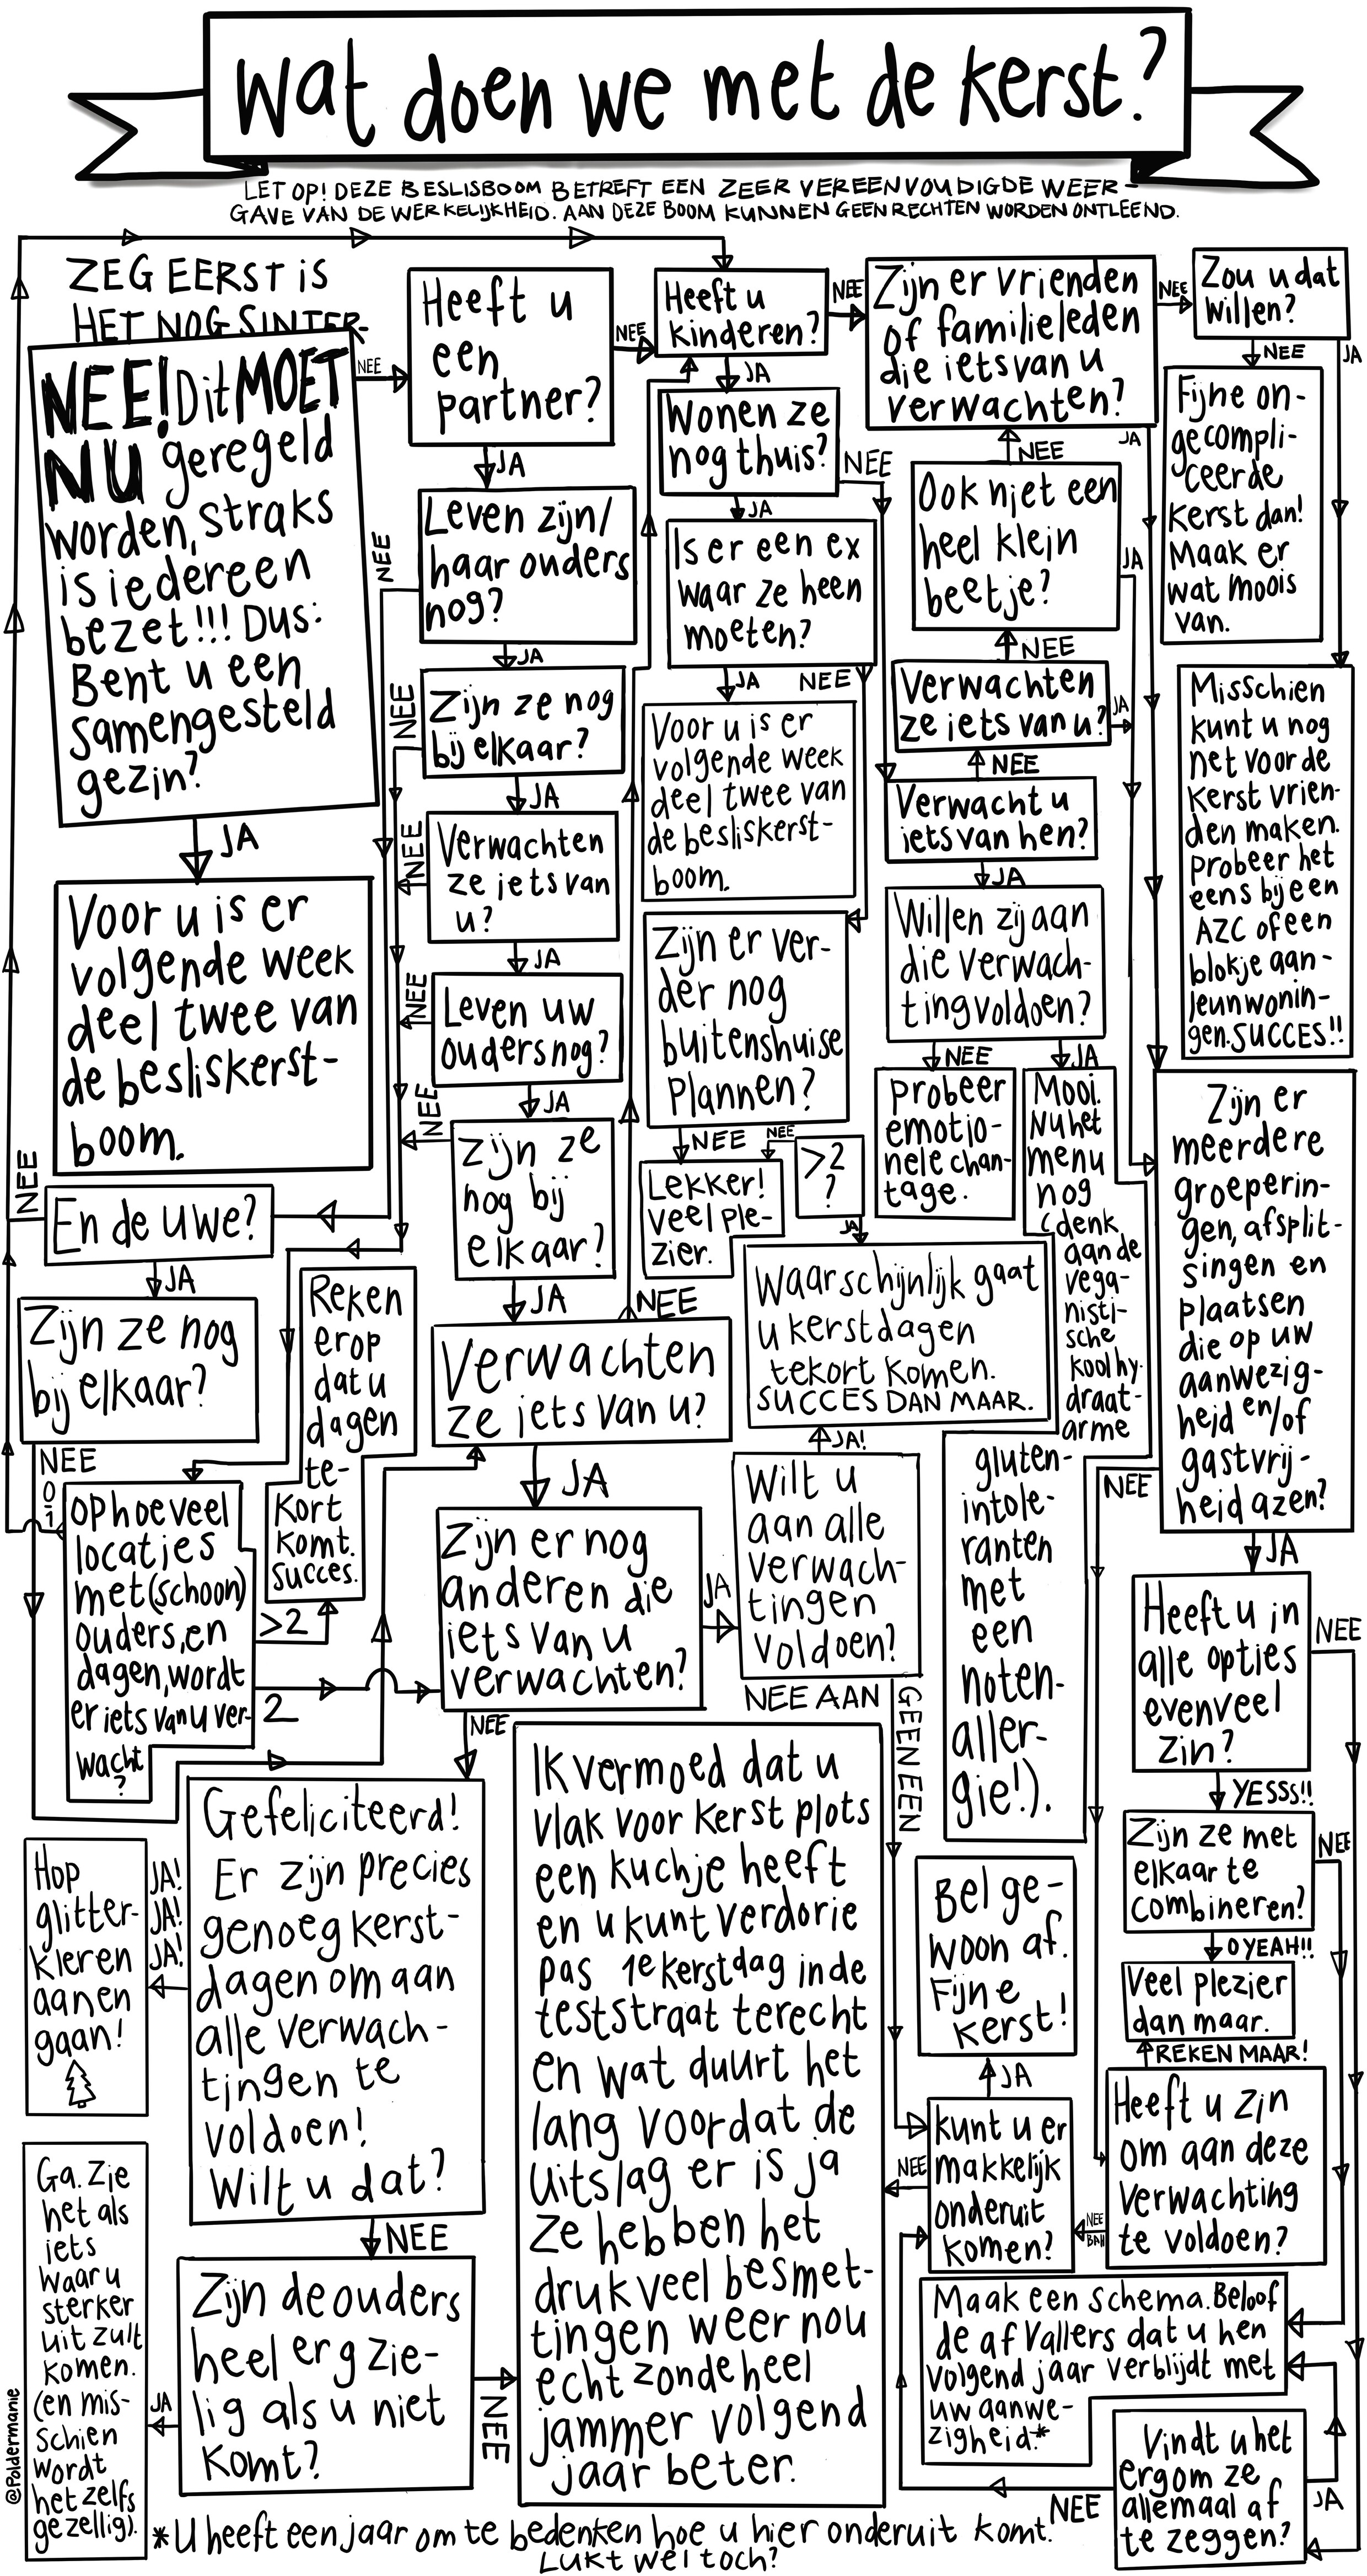 Wat doen we met de kerst?
LET OP! DEZE BESLISBOOM BETREFT EEN ZEER VEREENVOUDIGDE WEER-
GAVE VAN DE WERKELIJKHEID. AAN DEZE BOOM KUNNEN GEEN RECHTEN WORDEN ONTLEEND.
ZEG EERST IS
HET NOG SINTER-
NEE! Dit MOET
NU geregeld
worden, straks
is iedereen
bezet!!! DUS:
Bent u een
samengesteld
gezin?
NEE
JA
Voor u is er
volgende week
deel twee van
de besliskerst-
boom.
Heeft u
een
partner?
NEE
JA
Leven zijn/
haar ouders
nog?
NEE
JA
Zijn ze nog
bij elkaar?
NEE
JA
Verwachten
ze iets van
u?
NEE
JA
Leven uw
ouders nog?
NEE
JA
Zijn ze
nog bij
elkaar?
NEE
JA
Verwachten
ze iets van u?
NEE
JA
En de uwe?
NEE
JA
Zijn ze nog
bij elkaar?
NEE
Op hoeveel
locaties
met (schoon)
ouders, en
dagen, wordt
er iets van u ver-
wacht
?
0
1
>2
2
Reken
erop
dat u
dagen
te-
kort
komt.
Succes.
Zijn er nog
anderen die
iets van u
verwachten?
JA
NEE
Gefeliciteerd!
Er zijn precies
genoeg kerst-
dagen om aan
alle verwach-
tingen te
voldoen!
Wilt u dat?
JA!
JA!
JA!
NEE
Hop
glitter-
kleren
aan en
gaan!
Zijn de ouders
heel erg zie-
lig als u niet
komt?
JA
NEE
Ga. Zie
het als
iets
waar u
sterker
uit zult
komen.
(en mis-
schien
wordt
het zelfs
gezellig).
Heeft u
kinderen?
NEE
JA
Wonen ze
nog thuis?
NEE
JA
Is er een ex
waar ze heen
moeten?
JA
NEE
Voor u is er
volgende week
deel twee van
de besliskerst-
boom.
Zijn er ver-
der nog
buitenshuise
plannen?
NEE
NEE
>2
?
JA
Lekker!
Veel ple-
zier.
Waarschijnlijk gaat
u kerstdagen
tekort komen.
SUCCES DAN MAAR.
JA!
Wilt u
aan alle
verwach-
tingen
voldoen?
NEE AAN
GEEN EEN
Ik vermoed dat u
vlak voor kerst plots
een kuchje heeft
en u kunt verdorie
pas 1e kerstdag in de
teststraat terecht
en wat duurt het
lang voordat de
uitslag er is ja
ze hebben het
druk veel besmet-
tingen weer nou
echt zonde heel
jammer volgend
jaar beter.
Zijn er vrienden
of familieleden
die iets van u
verwachten?
NEE
JA
Zou u dat
willen?
NEE
JA
Fijne on-
gecompli-
ceerde
kerst dan!
Maak er
wat moois
van.
Misschien
kunt u nog
net voor de
kerst vrien-
den maken.
Probeer het
eens bij een
AZC of een
blokje aan-
leunwonin-
gen. SUCCES!!
NEE
Ook niet een
heel klein
beetje?
JA
NEE
Verwachten
ze iets van u?
JA
NEE
Verwacht u
iets van hen?
JA
Willen zij aan
die verwach-
ting voldoen?
NEE
JA
Probeer
emotio-
nele chan-
tage.
Mooi.
Nu het
menu
nog
(denk
aan de
vega-
nisti-
sche
koolhy-
draat-
arme
gluten-
intole-
ranten
met
een
noten-
aller-
gie!).
Zijn er
meerdere
groeperin-
gen, afsplit-
singen en
plaatsen
die op uw
aanwezig-
heid en/of
gastvrij-
heid azen?
NEE
JA
Heeft u in
alle opties
evenveel
zin?
NEE
YESSS!!
Zijn ze met
elkaar te
combineren?
NEE
O YEAH!!
Veel plezier
dan maar.
REKEN MAAR!
Heeft u zin
om aan deze
verwachting
te voldoen?
NEE
BAH
Bel ge-
woon af.
Fijne
kerst!
JA
Kunt u er
makkelijk
onderuit
komen?
NEE
Maak een schema. Beloof
de afvallers dat u hen
volgend jaar verblijdt met
uw aanwe-
zigheid.*
Vindt u het
erg om ze
allemaal af
te zeggen?
NEE
JA
*U heeft een jaar om te bedenken hoe u hier onderuit komt.
Lukt wel toch?
@Poldermanie